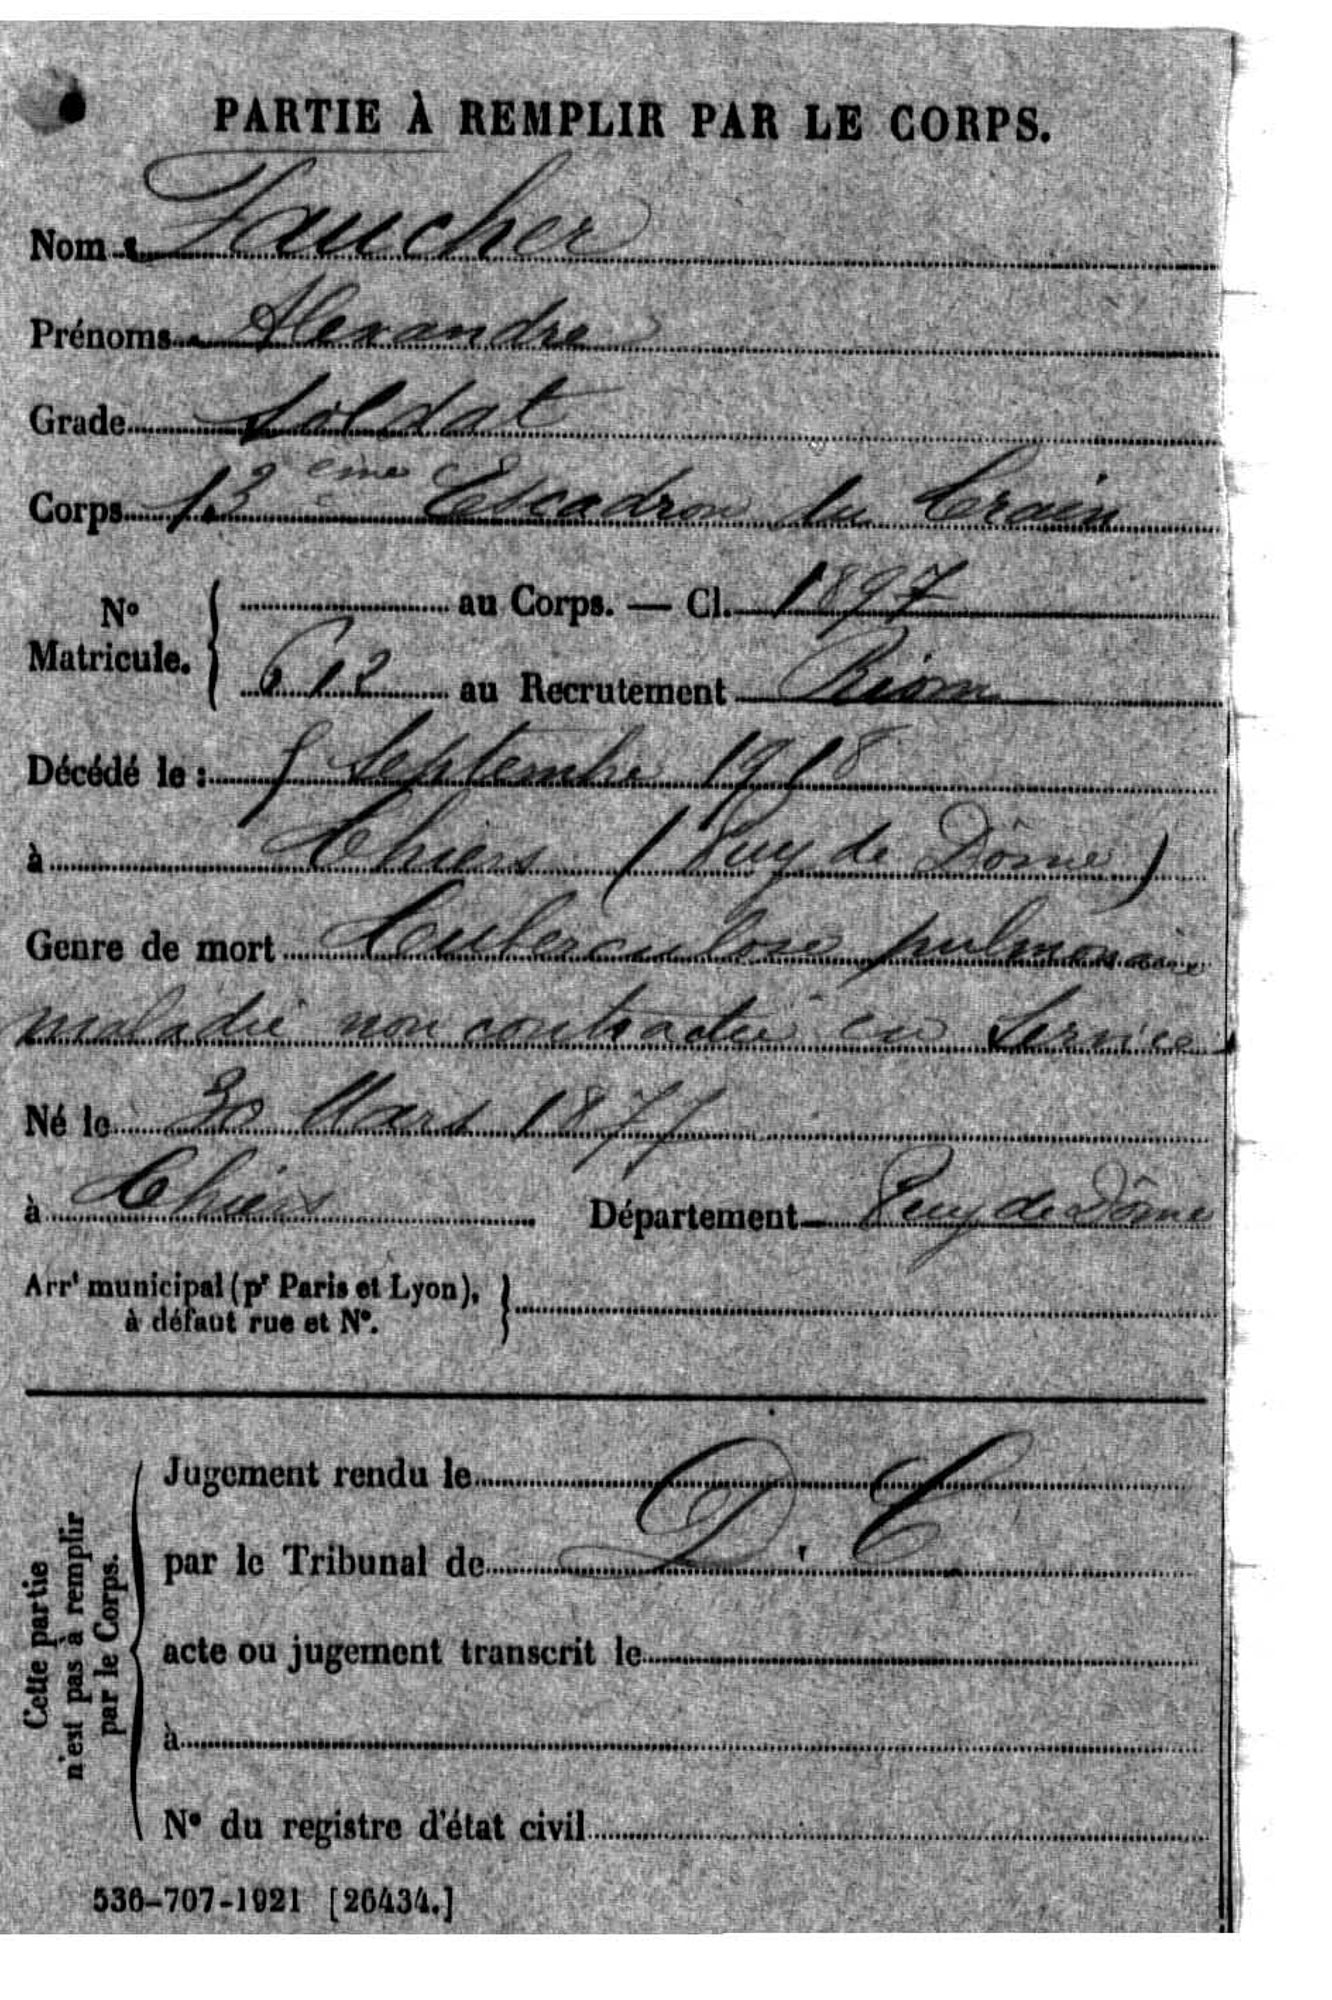 PARTIE À REMPLIR PAR LE CORPS.
Nom Faucher
Prénoms Alexandre
Grade Soldat
Corps 13ème Escadron du Train
No Matricule. { au Corps. — Cl. 1897
612 au Recrutement Riom
Décédé le : 5 Septembre 1918
à Thiers (Puy de Dôme)
Genre de mort Tuberculose pulmonaire
maladie non contractée en Service
Né le 30 Mars 1877
à Thiers Département Puy de Dôme
Arrt municipal (pr Paris et Lyon), }
à défaut rue et No.
Cette partie
n'est pas à remplir
par le Corps.
Jugement rendu le D. C
par le Tribunal de
acte ou jugement transcrit le
à
No du registre d'état civil
536-707-1921 [26434.]